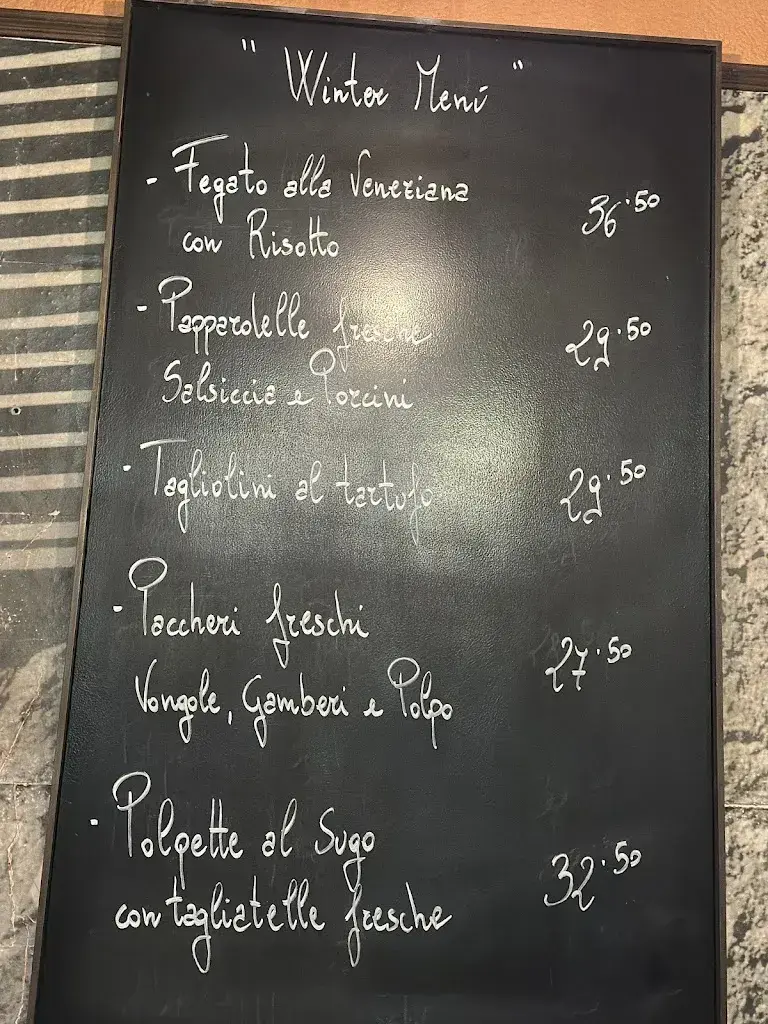 " Winter Menú "
- Fegato alla Veneziana
con Risotto 36.50
- Pappardelle fresche
Salsiccia e Porcini 29.50
- Tagliolini al tartufo 29.50
- Paccheri freschi
Vongole, Gamberi e Polpo 27.50
- Polpette al Sugo
con tagliatelle fresche 32.50